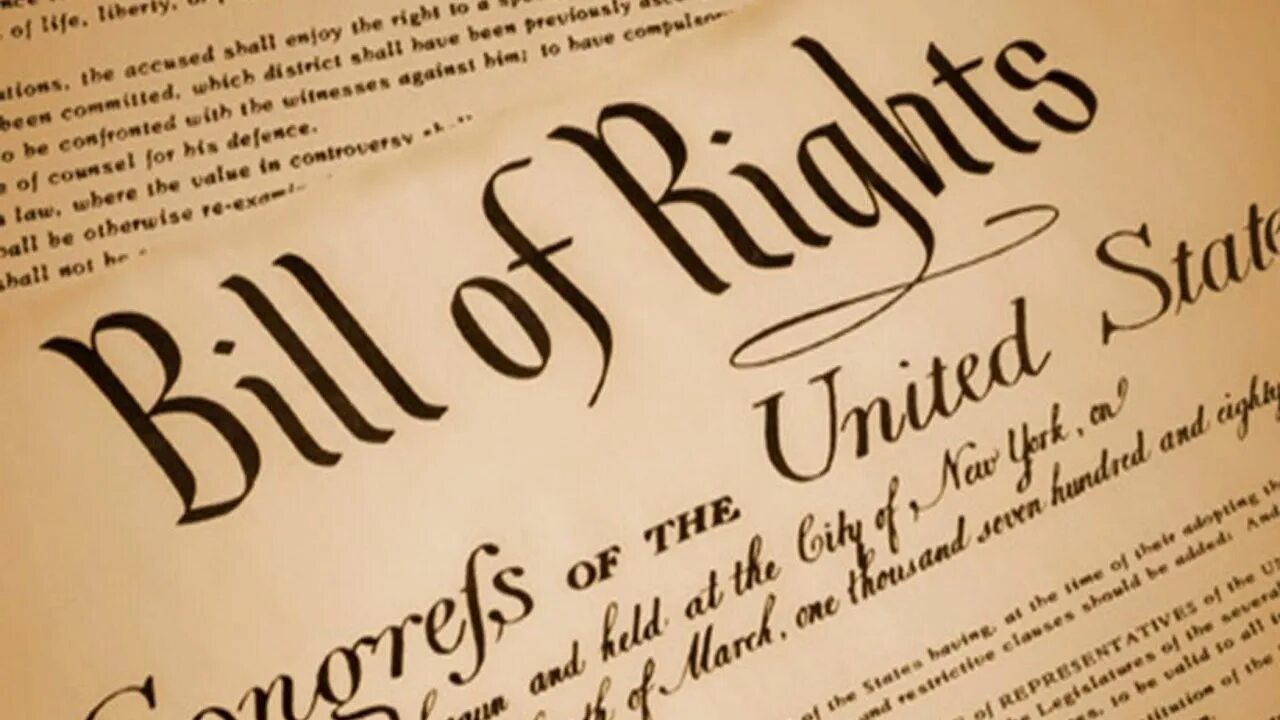 of life, liberty, or
ations, the accused shall enjoy the right to a
been committed, which district shall have been previously
o be confronted with the witnesses against him; to have compulsory
of counsel for his defence.
law, where the value in controversy
all be otherwise re-exam
shall not be
Bill of Rights
Congreſs OF THE United State
and held at the City of New York, on
of March, one thousand seven hundred and eighty
of the States having, at the time of their adopting th
and restrictive clauses should be added: And
of REPRESENTATIVES of the U
Legislatures of the severa
to be valid to all i
stitution of the